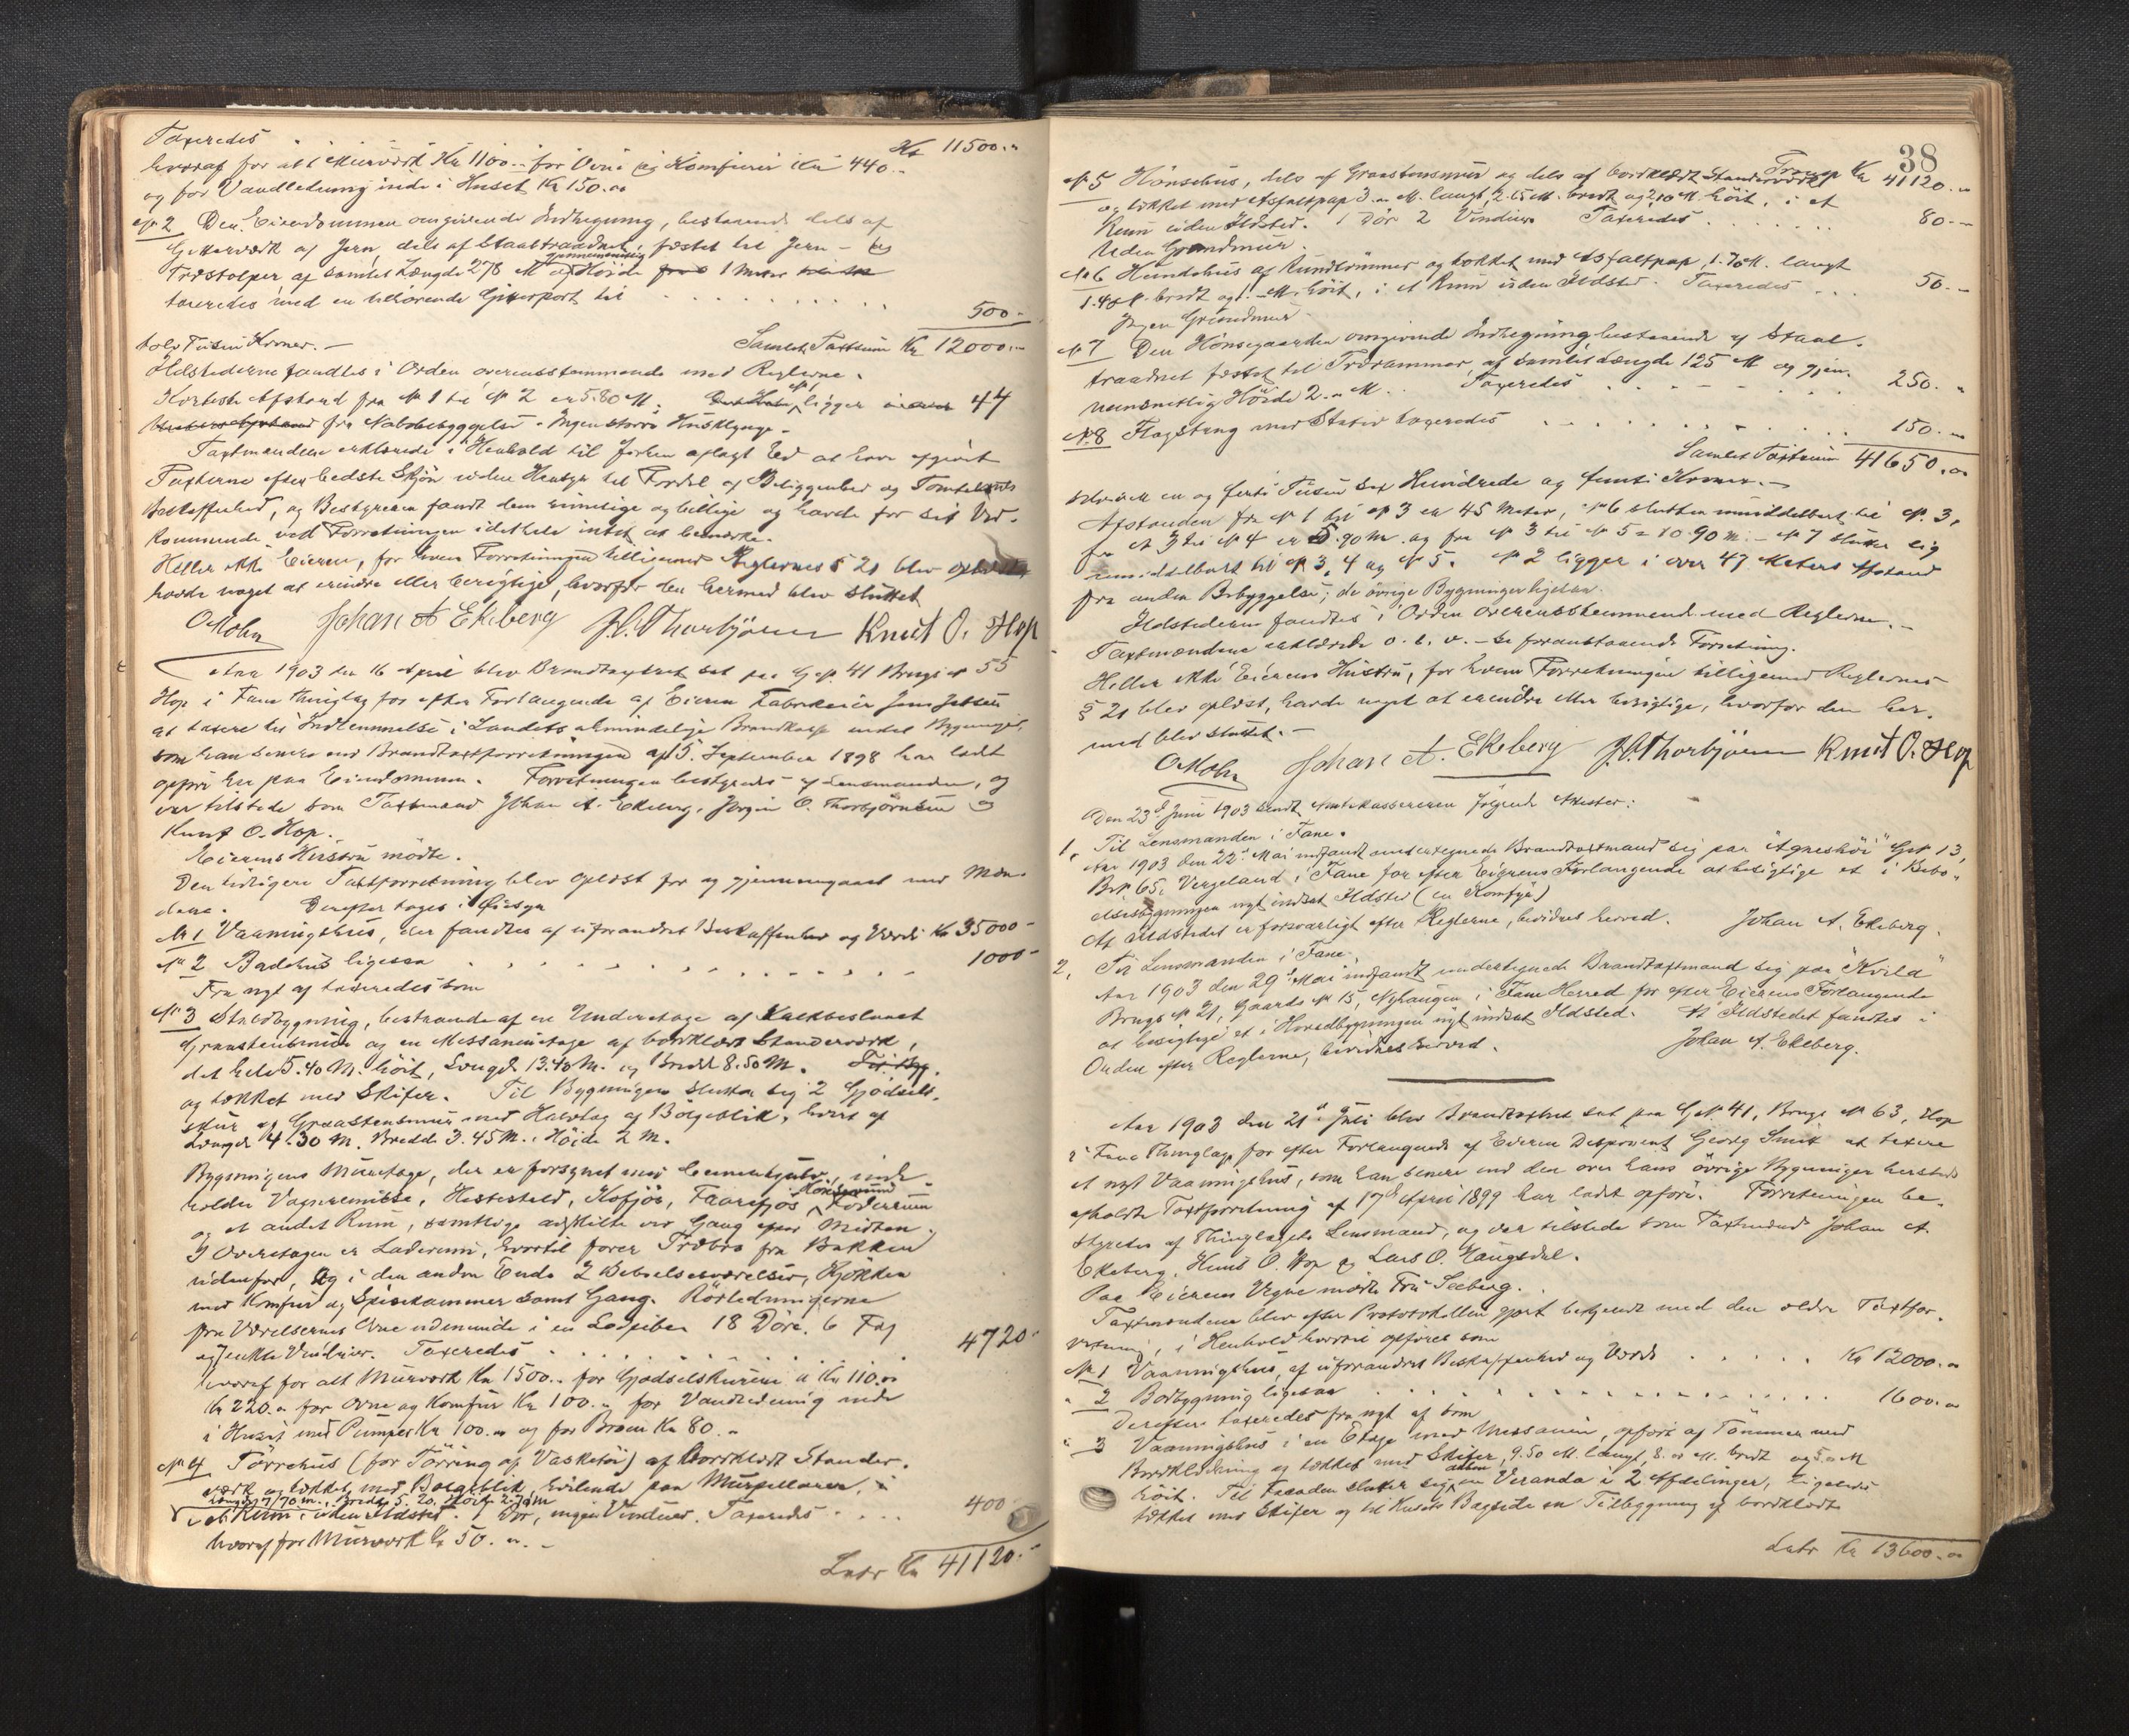 Taxeredes Kr 11500.-
hvoraf for alt Murværk Kr 1100.- for Ovne og Komfurer Kr 440.-
og for Vandledning inde i Huset Kr 150.00
No 2 Den Eiendommen omgivende Indhegning, bestaaende dels af
Gitterværk af Jern, dels af Staaltraadnet, fæstet til Jern- og
Træstolper af samlet Længde 278 M og gjennemsnitlig Høide 1 Meter
taxeredes med en tilhørende Gitterport til 500.-
tolv Tusen Kroner.- Samlet Taxtsum Kr 12000.-
Ildstederne fandtes i Orden overensstemmende med Reglerne.
Korteste Afstand fra No 1 til No 2 er 5.80 M. No 1 ligger 44
fra Nabobebyggelse. Ingen større Husklynge.-
Taxtmændene erklærede i Henhold til forhen aflagt Ed at have afgivet
Taxterne efter bedste Skjøn uden Hensyn til Fordel af Beliggenhed og Tomtelands
Beskaffenhed, og Bestyreren fandt dem rimelige og billige og havde for sit Ved-
kommende ved Forretningen idethele intet at bemærke.
Heller ikke Eieren, for hvem Forretningen tilligemed Reglernes § 21 blev oplæst
havde noget at erindre eller berigtige, hvorfor den hermed blev sluttet
OMohn Johan A Ekeberg J.O.Thorbjørnsen Knut O. Hop
Aar 1903 den 16 April blev Brandtaxtret sat paa G.No. 41 Brugs No 55
Hop i Fane Thinglag for efter Forlangende af Eieren Fabrikeier Jens Jebsen
at taxere til Indlemmelse i Landets almindelige Brandkasse endel Bygninger,
som han senere end Brandtaxtforretningen af 5. September 1898 har ladt
opføre her paa Eiendommen. Forretningen bestyredes af Lensmanden, og
var tilstede som Taxtmænd Johan A. Ekeberg, Jørgen O. Thorbjørnsen og
Knut O. Hop.
Eierens Hustru mødte.
Den tidligere Taxtforretning blev oplæst for og gjennemgaaet med Mæn-
dene. Derefter toges i Øiesyn
No 1 Vaaningshus, der fandtes af uforandret Beskaffenhed og Værdi Kr 35000-
No 2 Badehus ligesaa 1000-
Fra nyt af taxeredes som
No 3 Staldbygning, bestaaende af en Underetage af Kalkbeslaaet
Graastensmur og en Messaninetage af bordklædt Standerværk,
det hele 5.40 M. høit, Længde 13.40 M. og Bredde 8.50 M. Til Byg.
og tækket med Skifer. Til Bygningen slutter sig 2 Gjødsels-
skur af Graastensmur med Halvtag af Bølgeblik, hvert af
Længde 4.30 M. Bredde 3.45 M. Høide 2 M.
Bygningens Muretage, der er forsynet med Cementgulv, inde-
holder Vognremisse, Hestestald, Kofjøs, Faarefjøs, Hønserum Foderrum
og et andet Rum, samtlige adskilte ved Gang efter Midten.
I Overetagen er Laderum, hvortil fører Træbro fra Bakken
udenfor, og i den anden Ende 2 Beboelsesværelser, Kjøkken
med Komfur og Spisekammer samt Gang. Rørledningerne
fra Værelsernes Ovne udmunde i en Ladpiber 18 Døre. 6 Fag
og enkle Vinduer. Taxeredes 4720.-
hvoraf for alt Murværk Kr 1500.- for Gjødselskurene a Kr 110.00
Kr 220.- for Ovne og Komfur Kr 100.- for Vandledning inde
i Huset med Pumper Kr 100.00 og for Broen Kr 80.-
No 4 Tørrehus (for Tørring af Vasketøi) af bordklædt Stander-
værk og tækket med Bølgeblik, hvilende paa Murpillarer, i
Længde 7/70 m., Bredde 5.20, Høide 2.70 m
et Rum, uden Ildsted. 1 Dør, ingen Vinduer. Taxeredes 400.-
hvoraf for Murværk Kr 50.-
Latr Kr 41120.-
38
Transp Kr 41120.-
No 5 Hønsehus, dels af Graastensmur og dels af bordklædt Standerværk
og tækket med Asfaltpap 3.- M. langt, 2.65 M. bredt og 2,10 M. høit, i et
Rum uden Ildsted. 1 Dør 2 Vinduer Taxeredes 80.-
Uden Grundmur.
No 6 Hundehus af Rundtømmer og tækket med Asfaltpap, 1.70 M. langt
1.48 M. bredt og 1.- M. høit, i et Rum uden Ildsted. Taxeredes 50.-
Ingen Grundmur
No 7 Den Hønsegaarden omgivende Indhegning bestaaende af Staal-
traadnet fæstet til Trærammer, af samlet Længde 125 M og gjen-
nemsnitlig Høide 2.- M. Taxeredes 250.-
No 8 Flagstang med Stativ taxeredes 150.-
Samlet Taxtsum 41650.00
skriver en og førti Tusen sex Hundrede og femti Kroner.-
Afstanden fra No 1 til No 3 er 45 Meter, No 6 slutter umiddelbart til No. 3,
fra No 3 til No 4 er 5.90 m. og fra No 3 til No 5 = 10.90 m. - No 7 slutter sig
umiddelbart til No 3, 4 og No 5. No 2 ligger i over 47 Meters Afstand
fra anden Bebyggelse; de øvrige Bygninger ligesaa.
Ildstederne fandtes i Orden overensstemmende med Reglerne.-
Taxtmændene erklærede o. s. v. - se foranstaaende Forretning.
Heller ikke Eierens Hustru, for hvem Forretningen tilligemed Reglernes
§ 21 blev oplæst, havde noget at erindre eller berigtige, hvorfor den her-
med blev sluttet.-
OMohn Johan A. Ekeberg J.O.Thorbjørnsen Knut O. Hop
Den 23de Juni 1903 sendt Amtskassereren følgende Attester:
1. Til Lensmanden i Fane.
Aar 1903 den 22de Mai indfandt undertegnede Brandtaxtmand sig paa "Agneshøi" Gno 13,
Brno 65, Vergeland i Fane for efter Eierens Forlangende at besigtige et i Bebo-
elsesbygningen nyt indsat Ildsted (en Komfyr)
At Ildstedet er forsvarligt efter Reglerne, bevidnes herved. Johan A. Ekeberg.
2. Til Lensmanden i Fane.
Aar 1903 den 29de Mai indfandt undertegnede Brandtaxtmand sig paa "Kvila"
Brugs No 21, Gaards No 15, Nyhaugen i Fane Herred for efter Eierens Forlangende
at besigtige et i Hovedbygningen nyt indsat Ildsted. At Ildstedet fandtes i
Orden efter Reglerne, bevidnes herved. Johan A. Ekeberg.
Aar 1903 den 21de Juli blev Brandtaxtret sat paa GNo 41, Brugs No 63, Hop
i Fane Thinglag for efter Forlangende af Eieren Disponent Georg Smit at taxere
et nyt Vaaningshus, som han senere end den over hans øvrige Bygninger hersteds
afholdte Taxtforretning af 17de April 1899 har ladet opføre. Forretningen be-
styredes af Thinglagets Lensmand, og var tilstede som Taxtmænd Johan A.
Ekeberg, Knut O. Hop og Lars O. Haugsdal.
Paa Eierens Vegne mødte Fru Seeberg.
Taxtmændene blev efter Protokollen gjort bekjendt med den ældre Taxtfor-
retning, i Henhold hvortil opføres som
No 1 Vaaningshus, af uforandret Beskaffenhed og Værdi Kr 12000.00
" 2 Bodbygning ligesaa 1600.00
Derefter taxeredes fra nyt af som
" 3 Vaaningshus i en Etage med Messanin, opført af Tømmer med
Bordklædning og tækket med Skifer, 9.50 M. langt, 8.00 M. bredt og 5.- M
høit. Til Facaden slutter sig en aaben Veranda i 2 Afdelinger, ligeledes
tækket med Skifer og til Husets Bagside en Tilbygning af bordklædt
Latr Kr 13600.00